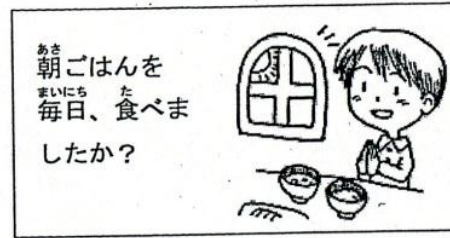 朝ごはんを
毎日、食べま
したか？